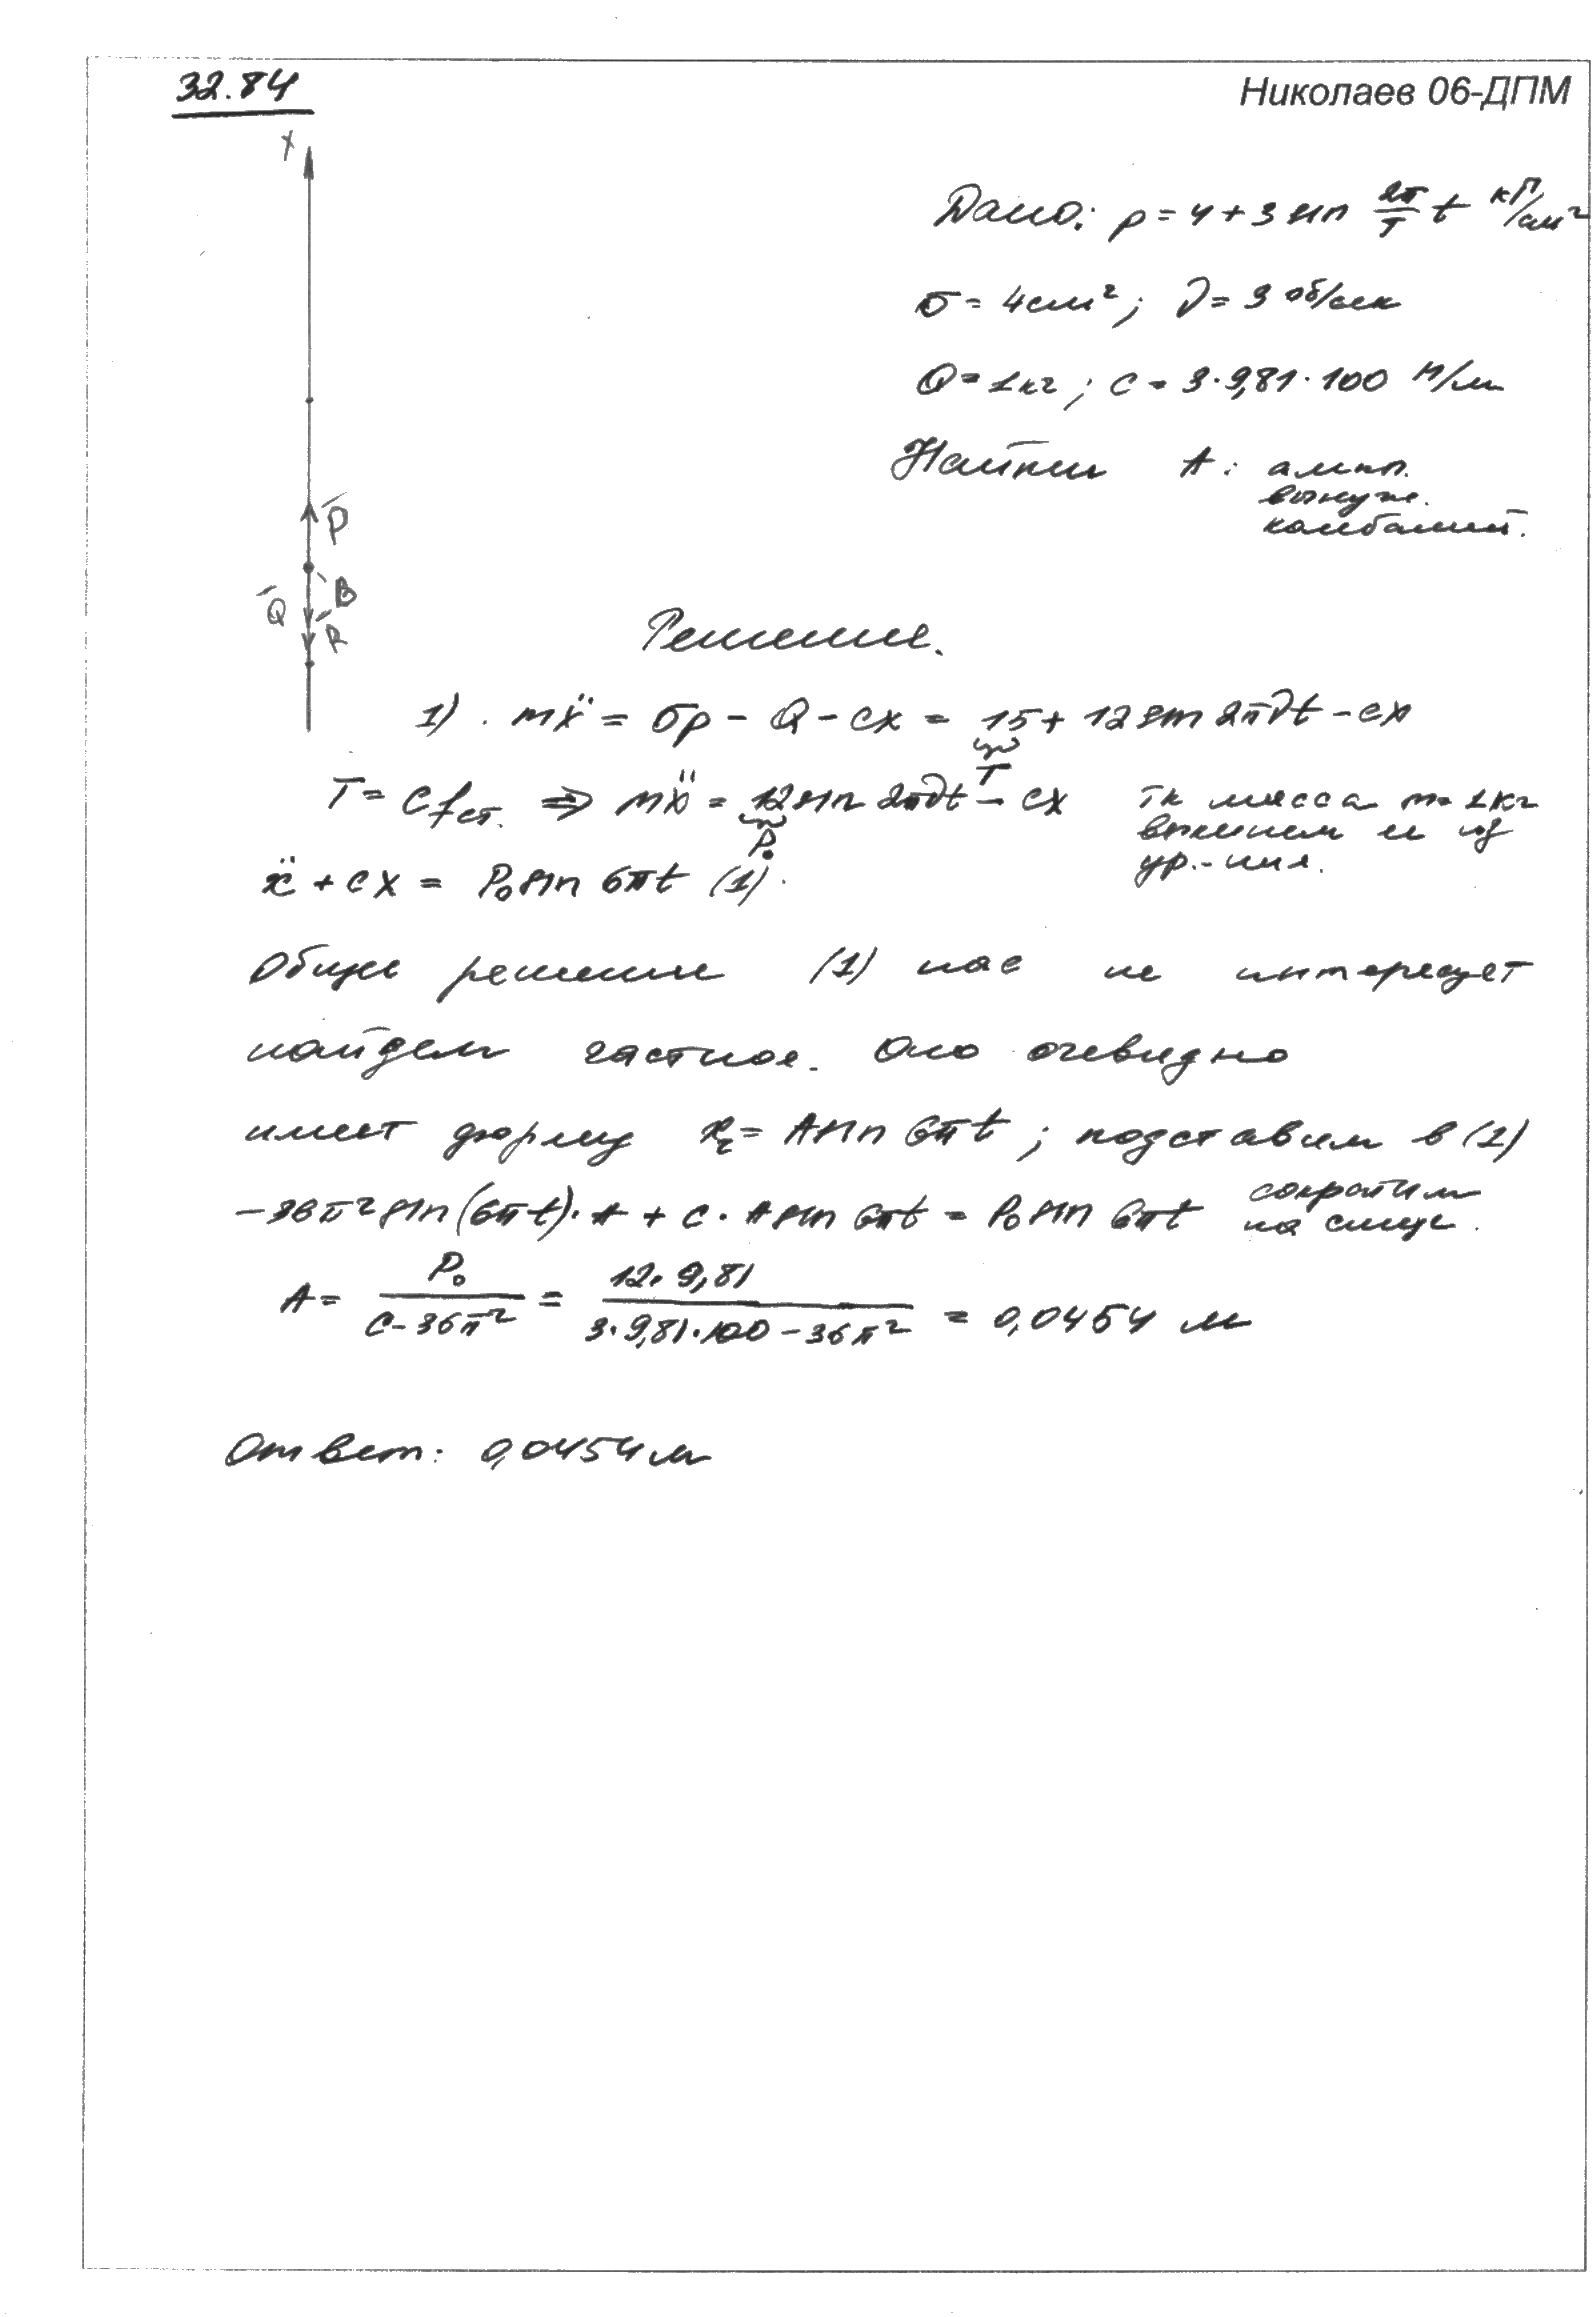 32.84
Николаев 06-ДПМ
x
Дано: p = 4 + 3 sin 2π/T t кГ/см²
σ = 4 см²; ν = 3 об/сек
Q = 1 кг; c = 3·9,81·100 Н/м
Найти A: ампл.
вынуж.
колебаний.
P
B
Q
R
Решение.
1). mẍ = σp - Q - cx = 15 + 12 sin 2πνt - cx
T
T = c f ст. ⇒ mẍ = 12 sin 2πνt - cx тк масса m = 1 кг
P₀
выкинем и из
ур.-ния.
ẍ + cx = P₀ sin 6πt (1).
Общее решение (1) нас не интересует
найдем частное. Оно очевидно
имеет форму x₂ = A sin 6πt; подставим в (1)
-36π² sin(6πt)·A + c·A sin 6πt = P₀ sin 6πt сократим
на синус.
A = P₀/(c - 36π²) = 12·9,81/(3·9,81·100 - 36π²) = 0,0454 м
Ответ: 0,0454 м